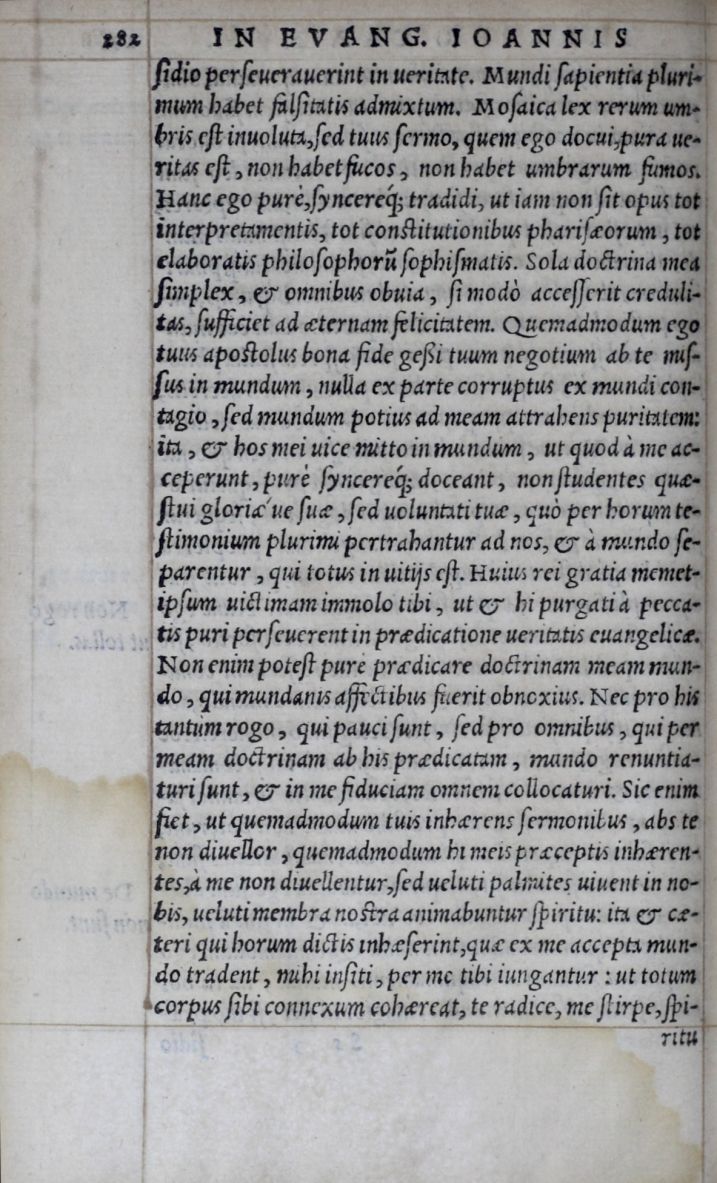 282 IN EVANG. IOANNIS
ſidio perſeuerauerint in ueritate. Mundi ſapientia pluri-
mum habet falſitatis admixtum. Moſaica lex rerum um-
bris eſt inuoluta, ſed tuus ſermo, quem ego docui, pura ue-
ritas eſt, non habet fucos, non habet umbrarum fumos.
Hanc ego purè, ſyncereq́; tradidi, ut iam non ſit opus tot
interpretamentis, tot conſtitutionibus phariſæorum, tot
elaboratis philoſophorũ ſophiſmatis. Sola doctrina mea
ſimplex, & omnibus obuia, ſi modò acceſſerit creduli-
tas, ſufficiet ad æternam felicitatem. Quemadmodum ego
tuus apoſtolus bona fide geſsi tuum negotium ab te miſ-
ſus in mundum, nulla ex parte corruptus ex mundi con-
tagio, ſed mundum potius ad meam attrahens puritatem:
ita, & hos mei uice mitto in mundum, ut quod à me ac-
ceperunt, purè ſyncereq́; doceant, non ſtudentes quæ-
ſtui gloriæ´ue ſuæ, ſed uoluntati tuæ, quò per horum te-
ſtimonium plurimi pertrahantur ad nos, & à mundo ſe-
parentur, qui totus in uitijs eſt. Huius rei gratia memet-
ipſum uictimam immolo tibi, ut & hi purgati à pecca-
tis puri perſeuerent in prædicatione ueritatis euangelicæ.
Non enim poteſt purè prædicare doctrinam meam mun-
do, qui mundanis affectibus fuerit obnoxius. Nec pro his
tantùm rogo, qui pauci ſunt, ſed pro omnibus, qui per
meam doctrinam ab his prædicatam, mundo renuntia-
turi ſunt, & in me fiduciam omnem collocaturi. Sic enim
fiet, ut quemadmodum tuis inhærens ſermonibus, abs te
non diuellor, quemadmodum hi meis præceptis inhæren-
tes, à me non diuellentur, ſed ueluti palmites uiuent in no-
bis, ueluti membra noſtra animabuntur ſpiritu: ita & cæ-
teri qui horum dictis inhæſerint, quæ ex me accepta mun-
do tradent, mihi inſiti, per me tibi iungantur : ut totum
corpus ſibi connexum cohæreat, te radice, me ſtirpe, ſpi-
ritu